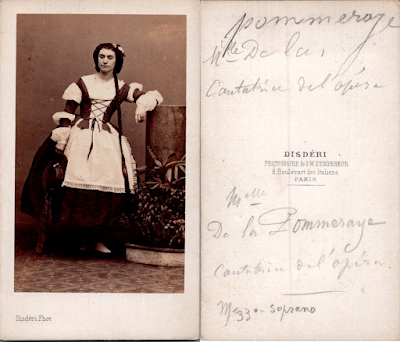 Disdéri.Phot.
pommeraye
Mlle De la,
Cantatrice de l'opéra
DISDÉRI
PHOTOGRAPHE de S.M. L'EMPEREUR
8, Boulevart des Italiens
PARIS
Melle
De la Pommeraye
Cantatrice de l'opéra.
Mezzo-Soprano